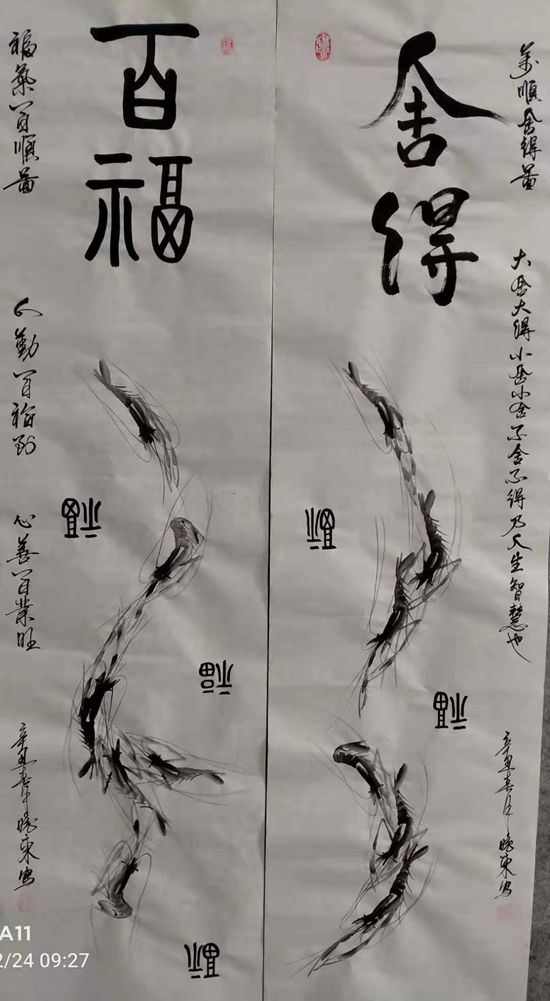 舍得
萬順舍得啚
大舍大得小舍小舍不舍不得乃人生智慧也
辛丑春月
福
福
百福
福氣百順啚
人勤百福到
心善百業旺
辛丑春
福
福
福
A11
2/24 09:27